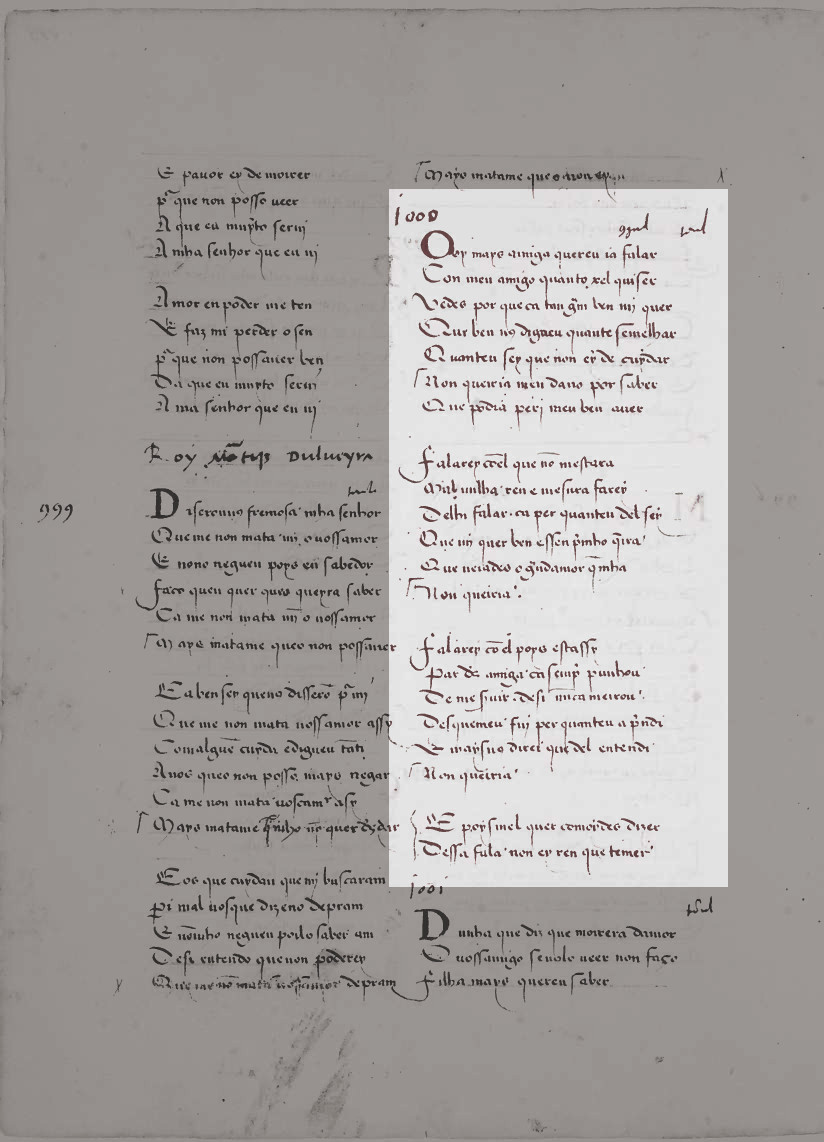 E pavor ey de moirer
p̃ que non posso veer
A que eu muyto servi
A mha senhor que eu vi
Amor en poder me ten
E faz mi perder o sen
p̃ que non poss aver ben
Da que eu muyto servi
A ma senhor que eu vi
Roy Dulueyra
999
Diseronus fremosa mha senhor
Que me non mata mi o vossamor
E nono negueu poys eu sabedor
faço queu quer quro queyra saber
Ca me non mata mi o vossamor
Mays matame queo non possaver
Ca ben sey queuo disserõ p̃ mi
Que me non mata vossamor assy
Comalguẽ cuyda edigueu
Avos queo non posso mays negar
Ca me non mata assy
Mays matame non quer
Eos que cuydan que mj buscaram
Per mal vosque dizeno depram
E negueu poilo saber am
Desy entendo que non poderey
Que ia nõ mata depram
Mays matame que
1000
Ooy mays amiga quereu ia falar
Con meu amigo quanto xel quiser
Vedes por que ca tan grã ben mj quer
Que ben uꝯ digueu quante semelhar
Quanteu sey que non ey de cuydar
Non queiria meu dano por saber
Que podia perj meu ben aver
Falarey cõel que nõ mestara
Mal nulha ren e mesura farey
Delhi falar ca per quanteu del sey
Que mj quer ben essen p̃mho q̃ira
Que veiades o grãdamor q̃mha
Non queiria
Falarey cõel poys estassy
Par dẽ amiga ca semp̃ punhou
De me ſuir desi nũca meirou
Desquemeu fuj per quanteu ap̃ndi
E mays uꝯ direi que del entendi
Non queiria
E poys mel quer comoydes dizer
Dessa fala non ey ren que temer
1001
Dunha que diz que moirera damor
O vossamigo se volo veer non faço
Filha mays quereu saber